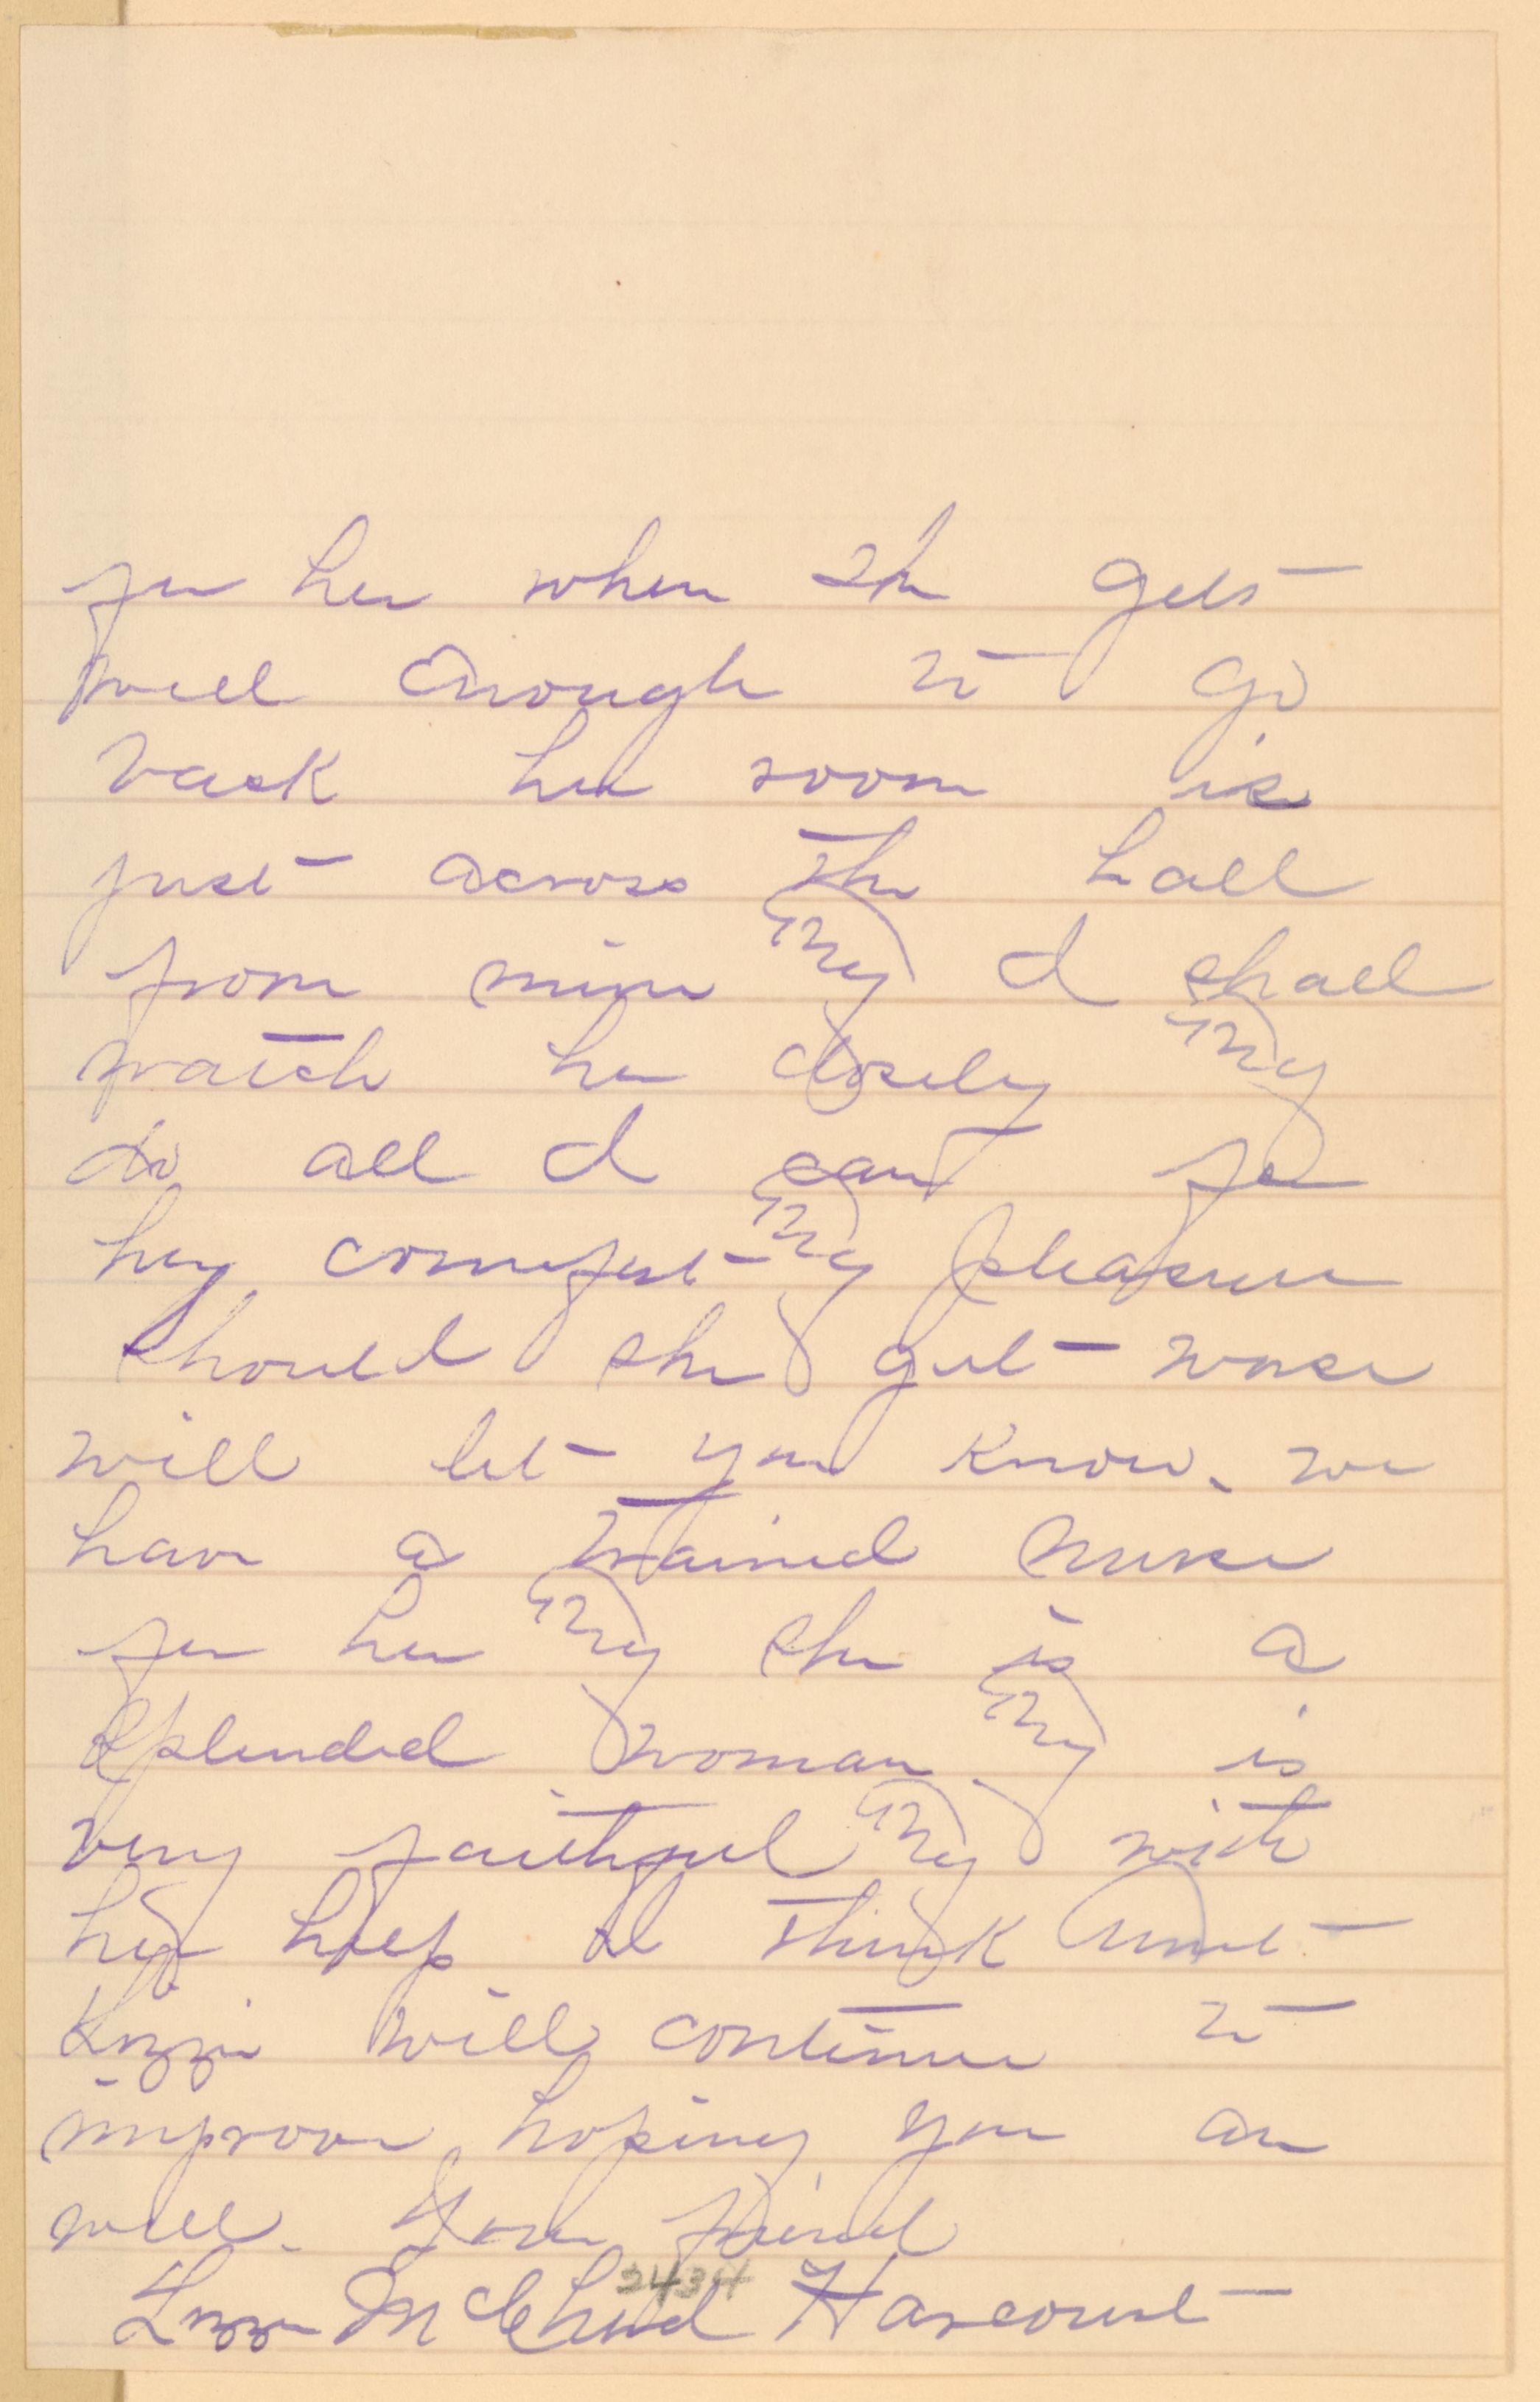 for her when she gets
well enough to go
back her room is
just across the hall
from mine & I shall
watch her closely &
do all I can for
her comfort & pleasure
should she get worse
will let you know. we
have a trained nurse
for her & she is a
splended woman & is
very faithful & with
her help I think Aunt
Kizzie will continue to
improve, hoping you are
well. Your friend
2434
Lizzie McChord Harcourt